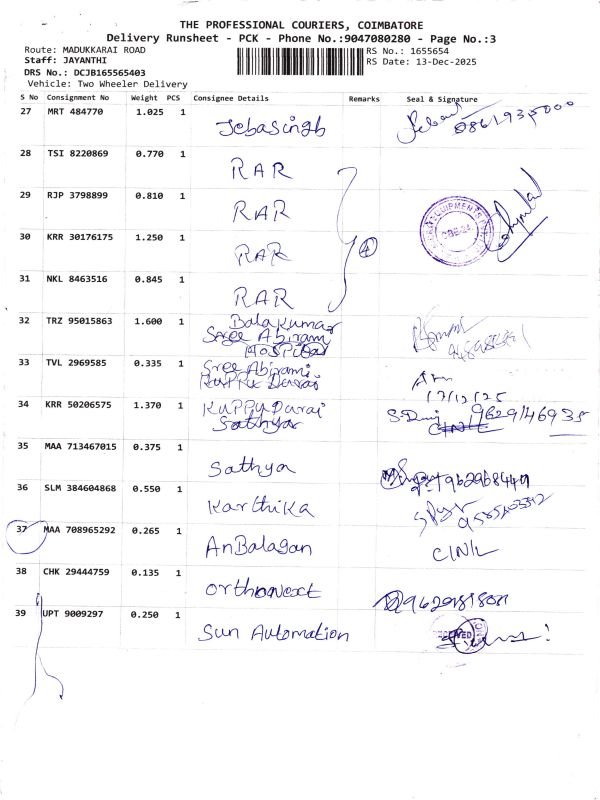 THE PROFESSIONAL COURIERS, COIMBATORE
Delivery Runsheet - PCK - Phone No.:9047080280 - Page No.:3
Route: MADUKKARAI ROAD
RS No.: 1655654
Staff: JAYANTHI
RS Date: 13-Dec-2025
DRS No.: DCJB165565403
Vehicle: Two Wheeler Delivery
S No Consignment No Weight PCS Consignee Details Remarks Seal & Signature
27 MRT 484770 1.025 1 Jebasingh
28 TSI 8220869 0.770 1 RAR
29 RJP 3798899 0.810 1 RAR
30 KRR 30176175 1.250 1 RAR 4
31 NKL 8463516 0.845 1 RAR
32 TRZ 95015863 1.600 1 Balakumar
Sree Abiram
Hospital
33 TVL 2969585 0.335 1 Sree Abirami
Kuppu Durai
17/12/25
34 KRR 50206575 1.370 1 Kuppu Durai
Sathya
9629146935
35 MAA 713467015 0.375 1 Sathya
36 SLM 384604868 0.550 1 Karthika
37 MAA 708965292 0.265 1 AnBalagan
38 CHK 29444759 0.135 1 Orthonext
39 UPT 9009297 0.250 1 Sun Automation